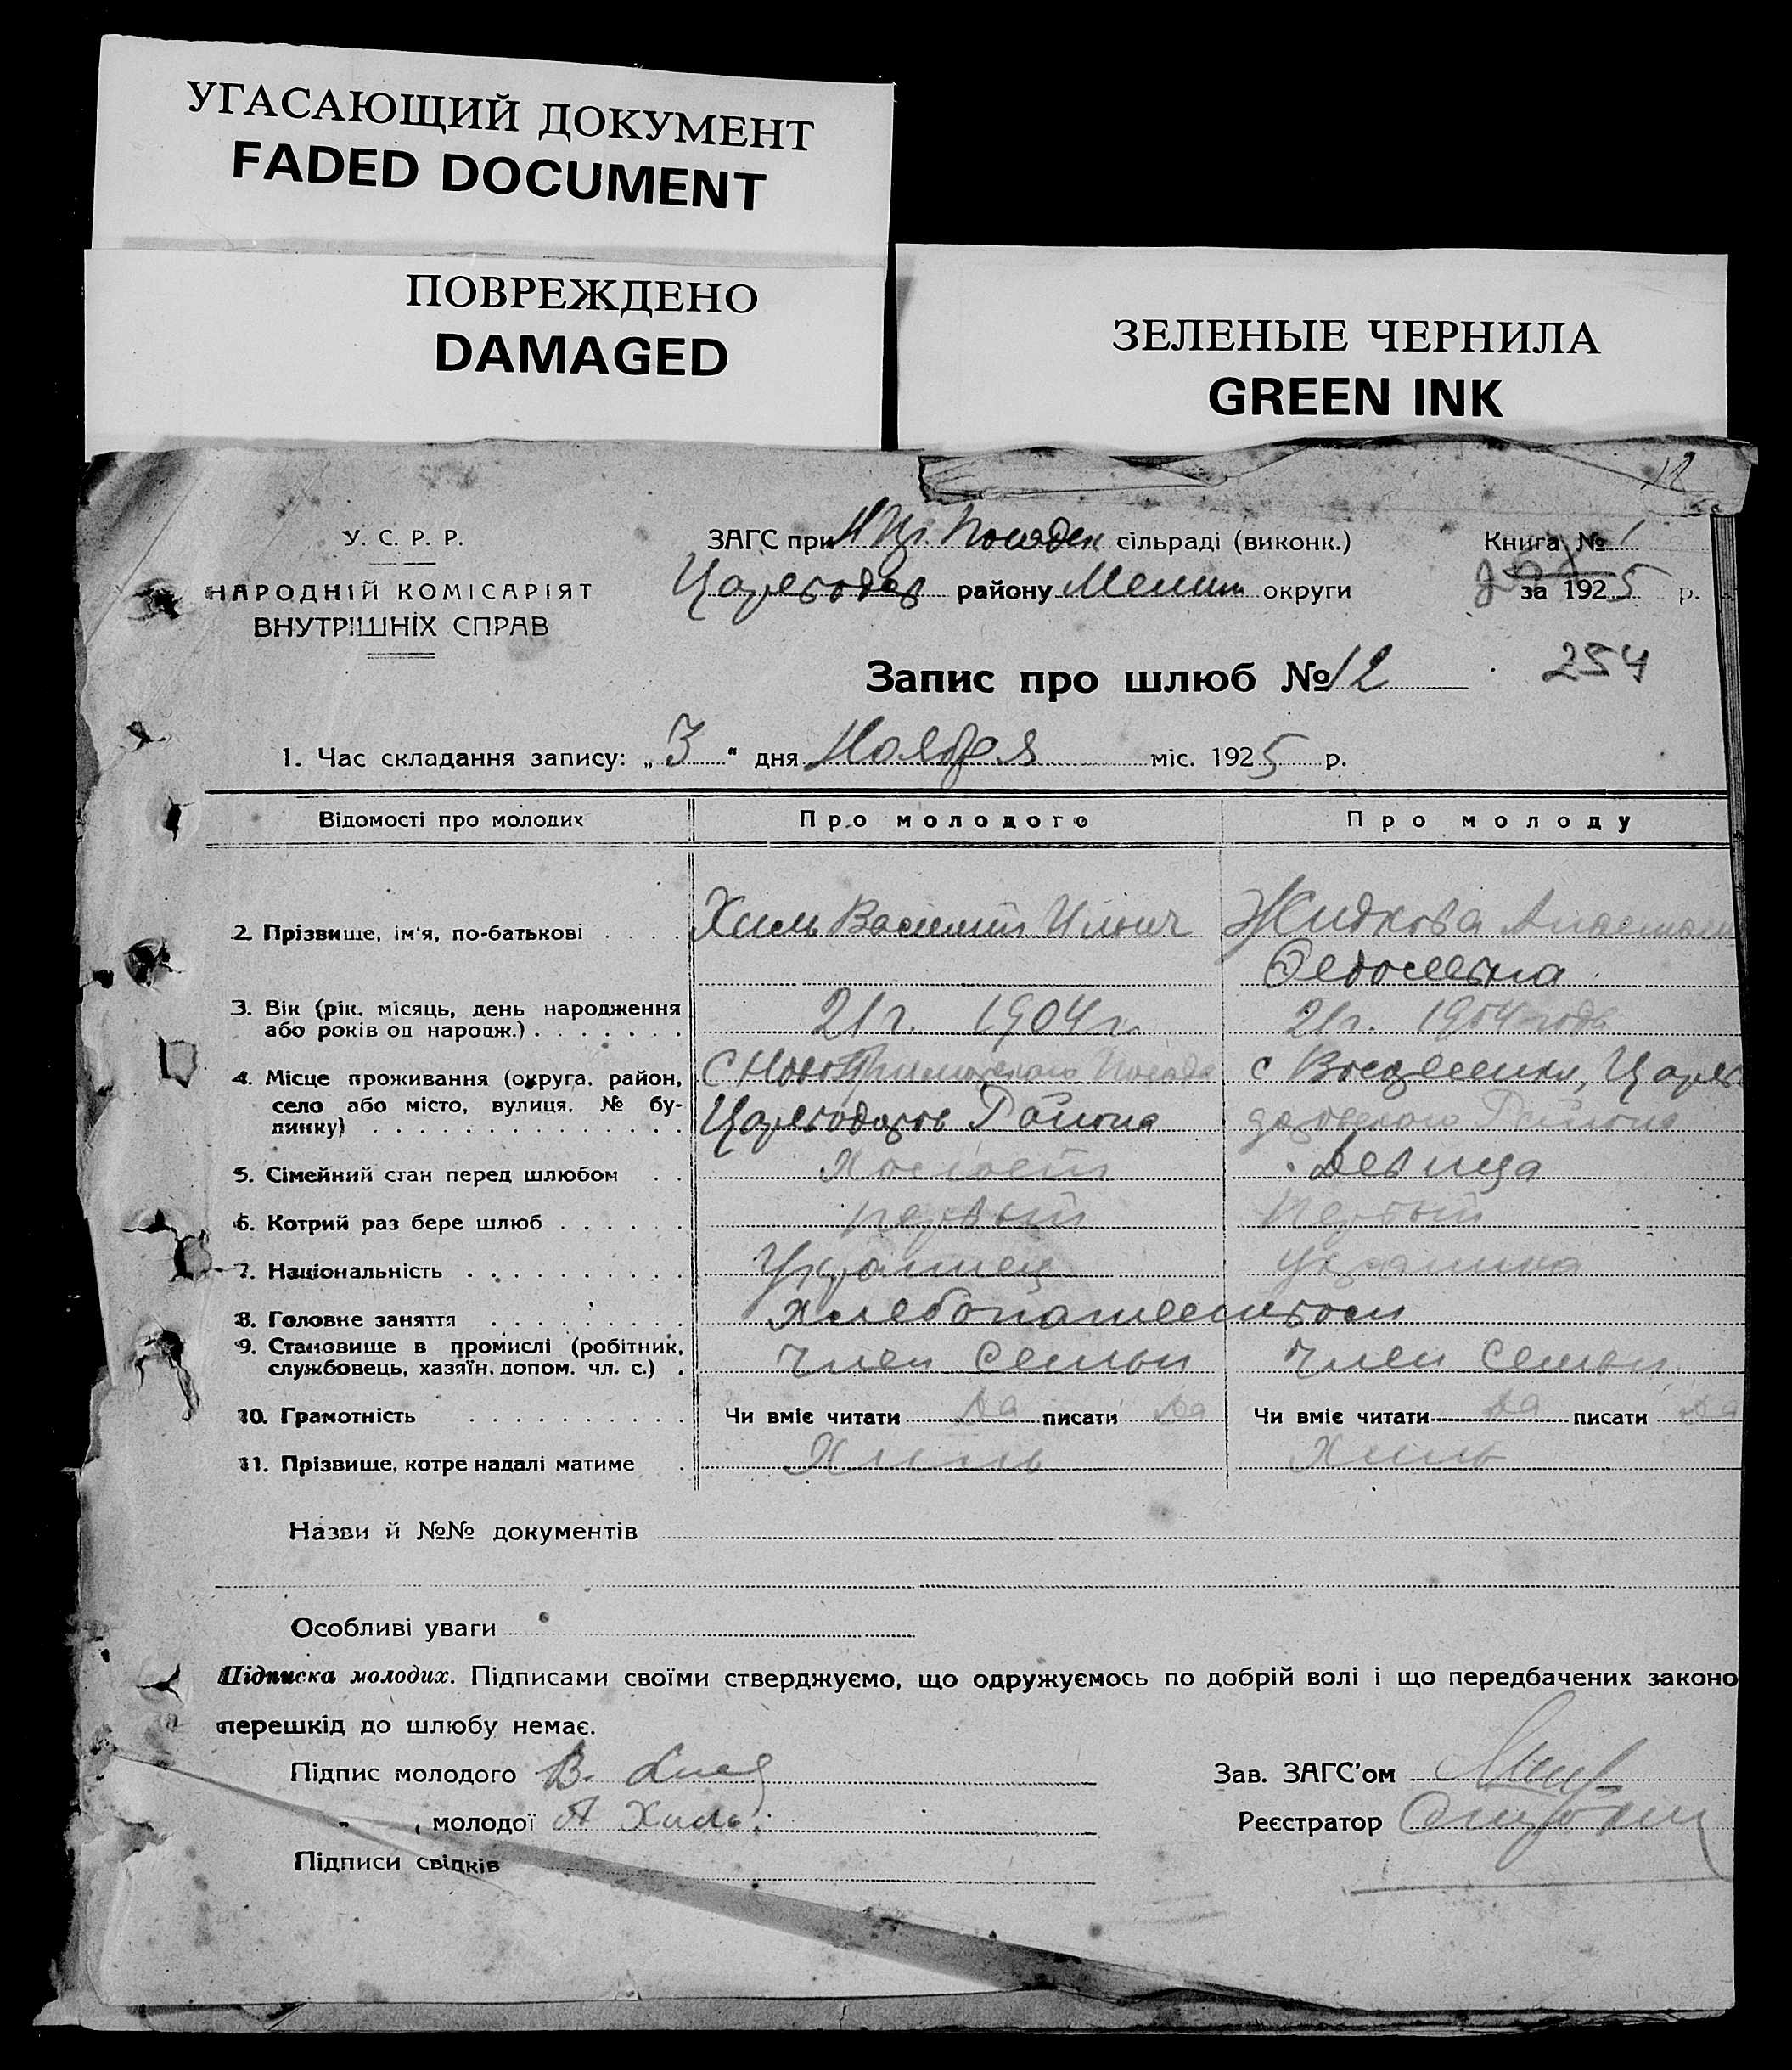 УГАСАЮЩИЙ ДОКУМЕНТ
FADED DOCUMENT
ПОВРЕЖДЕНО
DAMAGED
ЗЕЛЕНЫЕ ЧЕРНИЛА
GREEN INK
12
У. С. Р. Р.
НАРОДНІЙ КОМІСАРІЯТ
ВНУТРІШНІХ СПРАВ
ЗАГС при сільраді (виконк.)
району Мелит округи
Книга № 1
за 1925 р.
Запис про шлюб № 12
254
1. Час складання запису: „3“ дня Ноября міс. 1925 р.
Відомості про молодих Про молодого Про молоду
2. Прізвище, ім'я, по-батькові . . . . Хиль Василий Ильич Жидкова Анастаси
Федосеевна
3. Вік (рік, місяць, день народження
або років од народж.) . . . . . . . 21 г. 1904 г. 21 г. 1904 года
4. Місце проживання (округа, район,
село або місто, вулиця, № бу-
динку) . . . . . . . . . . . . . . .
С Посада с Воскресенка, Царе
Района Района
5. Сімейний стан перед шлюбом . . Холост Девица
6. Котрий раз бере шлюб . . . . . . первый первый
7. Національність . . . . . . . . . . Украинец Украинка
8. Головне заняття . . . . . . . . . хлебопашеством
9. Становище в промислі (робітник,
службовець, хазяїн, допом. чл. с.) . Член семьи Член семьи
10. Грамотність . . . . . . . . . . Чи вміє читати да писати да Чи вміє читати да писати да
11. Прізвище, котре надалі матиме . Хиль Хиль
Назви й №№ документів
Особливі уваги
Підписка молодих. Підписами своїми стверджуємо, що одружуємось по добрій волі і що передбачених законо
перешкід до шлюбу немає.
Підпис молодого В. Зав. ЗАГС'ом
„ молодої А Хиль. Реєстратор
Підписи свідків